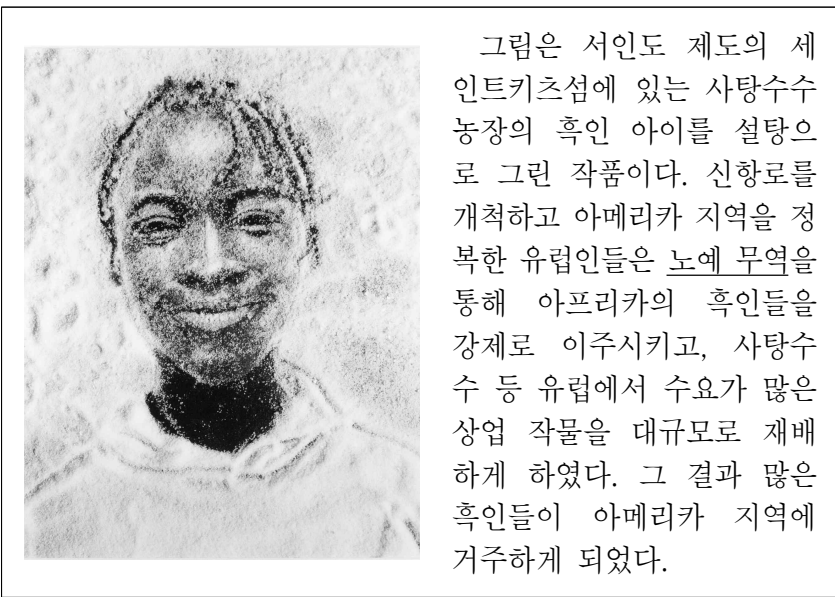 그림은 서인도 제도의 세
인트키츠섬에 있는 사탕수수
농장의 흑인 아이를 설탕으
로 그린 작품이다. 신항로를
개척하고 아메리카 지역을 정
복한 유럽인들은 노예 무역을
통해 아프리카의 흑인들을
강제로 이주시키고, 사탕수
수 등 유럽에서 수요가 많은
상업 작물을 대규모로 재배
하게 하였다. 그 결과 많은
흑인들이 아메리카 지역에
거주하게 되었다.